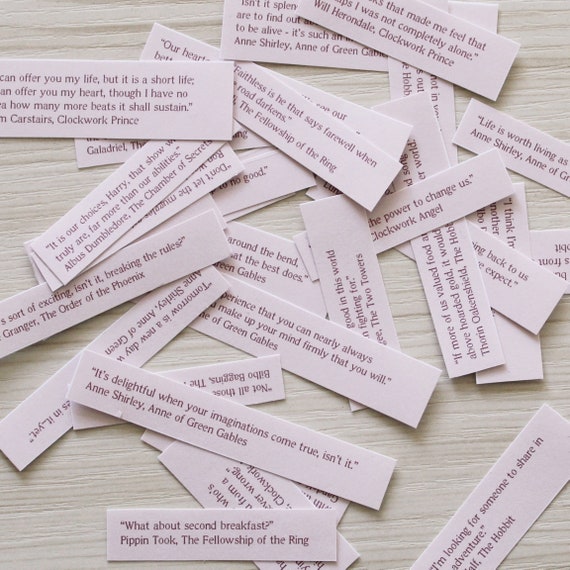 Isn't it splen
are to find out
to be alive - it's such an
Anne Shirley, Anne of Green Gables
ks that made me feel that
ps I was not completely alone."
Will Herondale, Clockwork Prince
the Hobbit
"Our hear
Galadriel, The
can offer you my life, but it is a short life;
an offer you my heart, though I have no
a how many more beats it shall sustain."
m Carstairs, Clockwork Prince
Faithless is he that says farewell when
road darkens."
The Fellowship of the Ring
"Life is worth living as
Anne Shirley, Anne
"It is our choices, Harry, that show w
truly are, far more than our abilities."
Albus Dumbledore, The Chamber of Secre
"Don't let the mu
to no good."
the power to change us."
Clockwork Angel
"I think
"If more of us valued food a
above hoarded gold, it would
Thorin Oakenshield, The Hobbit
er world
ng back to us
e expect."
good in this world
h fighting for."
ee, The Two Towers
around the bend,
at the best does."
n of Green Gables
s sort of exciting, isn't it, breaking the rules?"
Granger, The Order of the Phoenix
Tomorrow is a new day w
es in it...yet."
Anne Shirley, Anne of Green
perience that you can nearly always
make up your mind firmly that you will."
of Green Gables
"Not all those
Bilbo Baggins, The
"It's delightful when your imaginations come true, isn't it."
Anne Shirley, Anne of Green Gables
who's
ed from a
ver wrong."
Clockwork
"What about second breakfast?"
Pippin Took, The Fellowship of the Ring
"I'm looking for someone to share in
adventure."
lf, The Hobbit